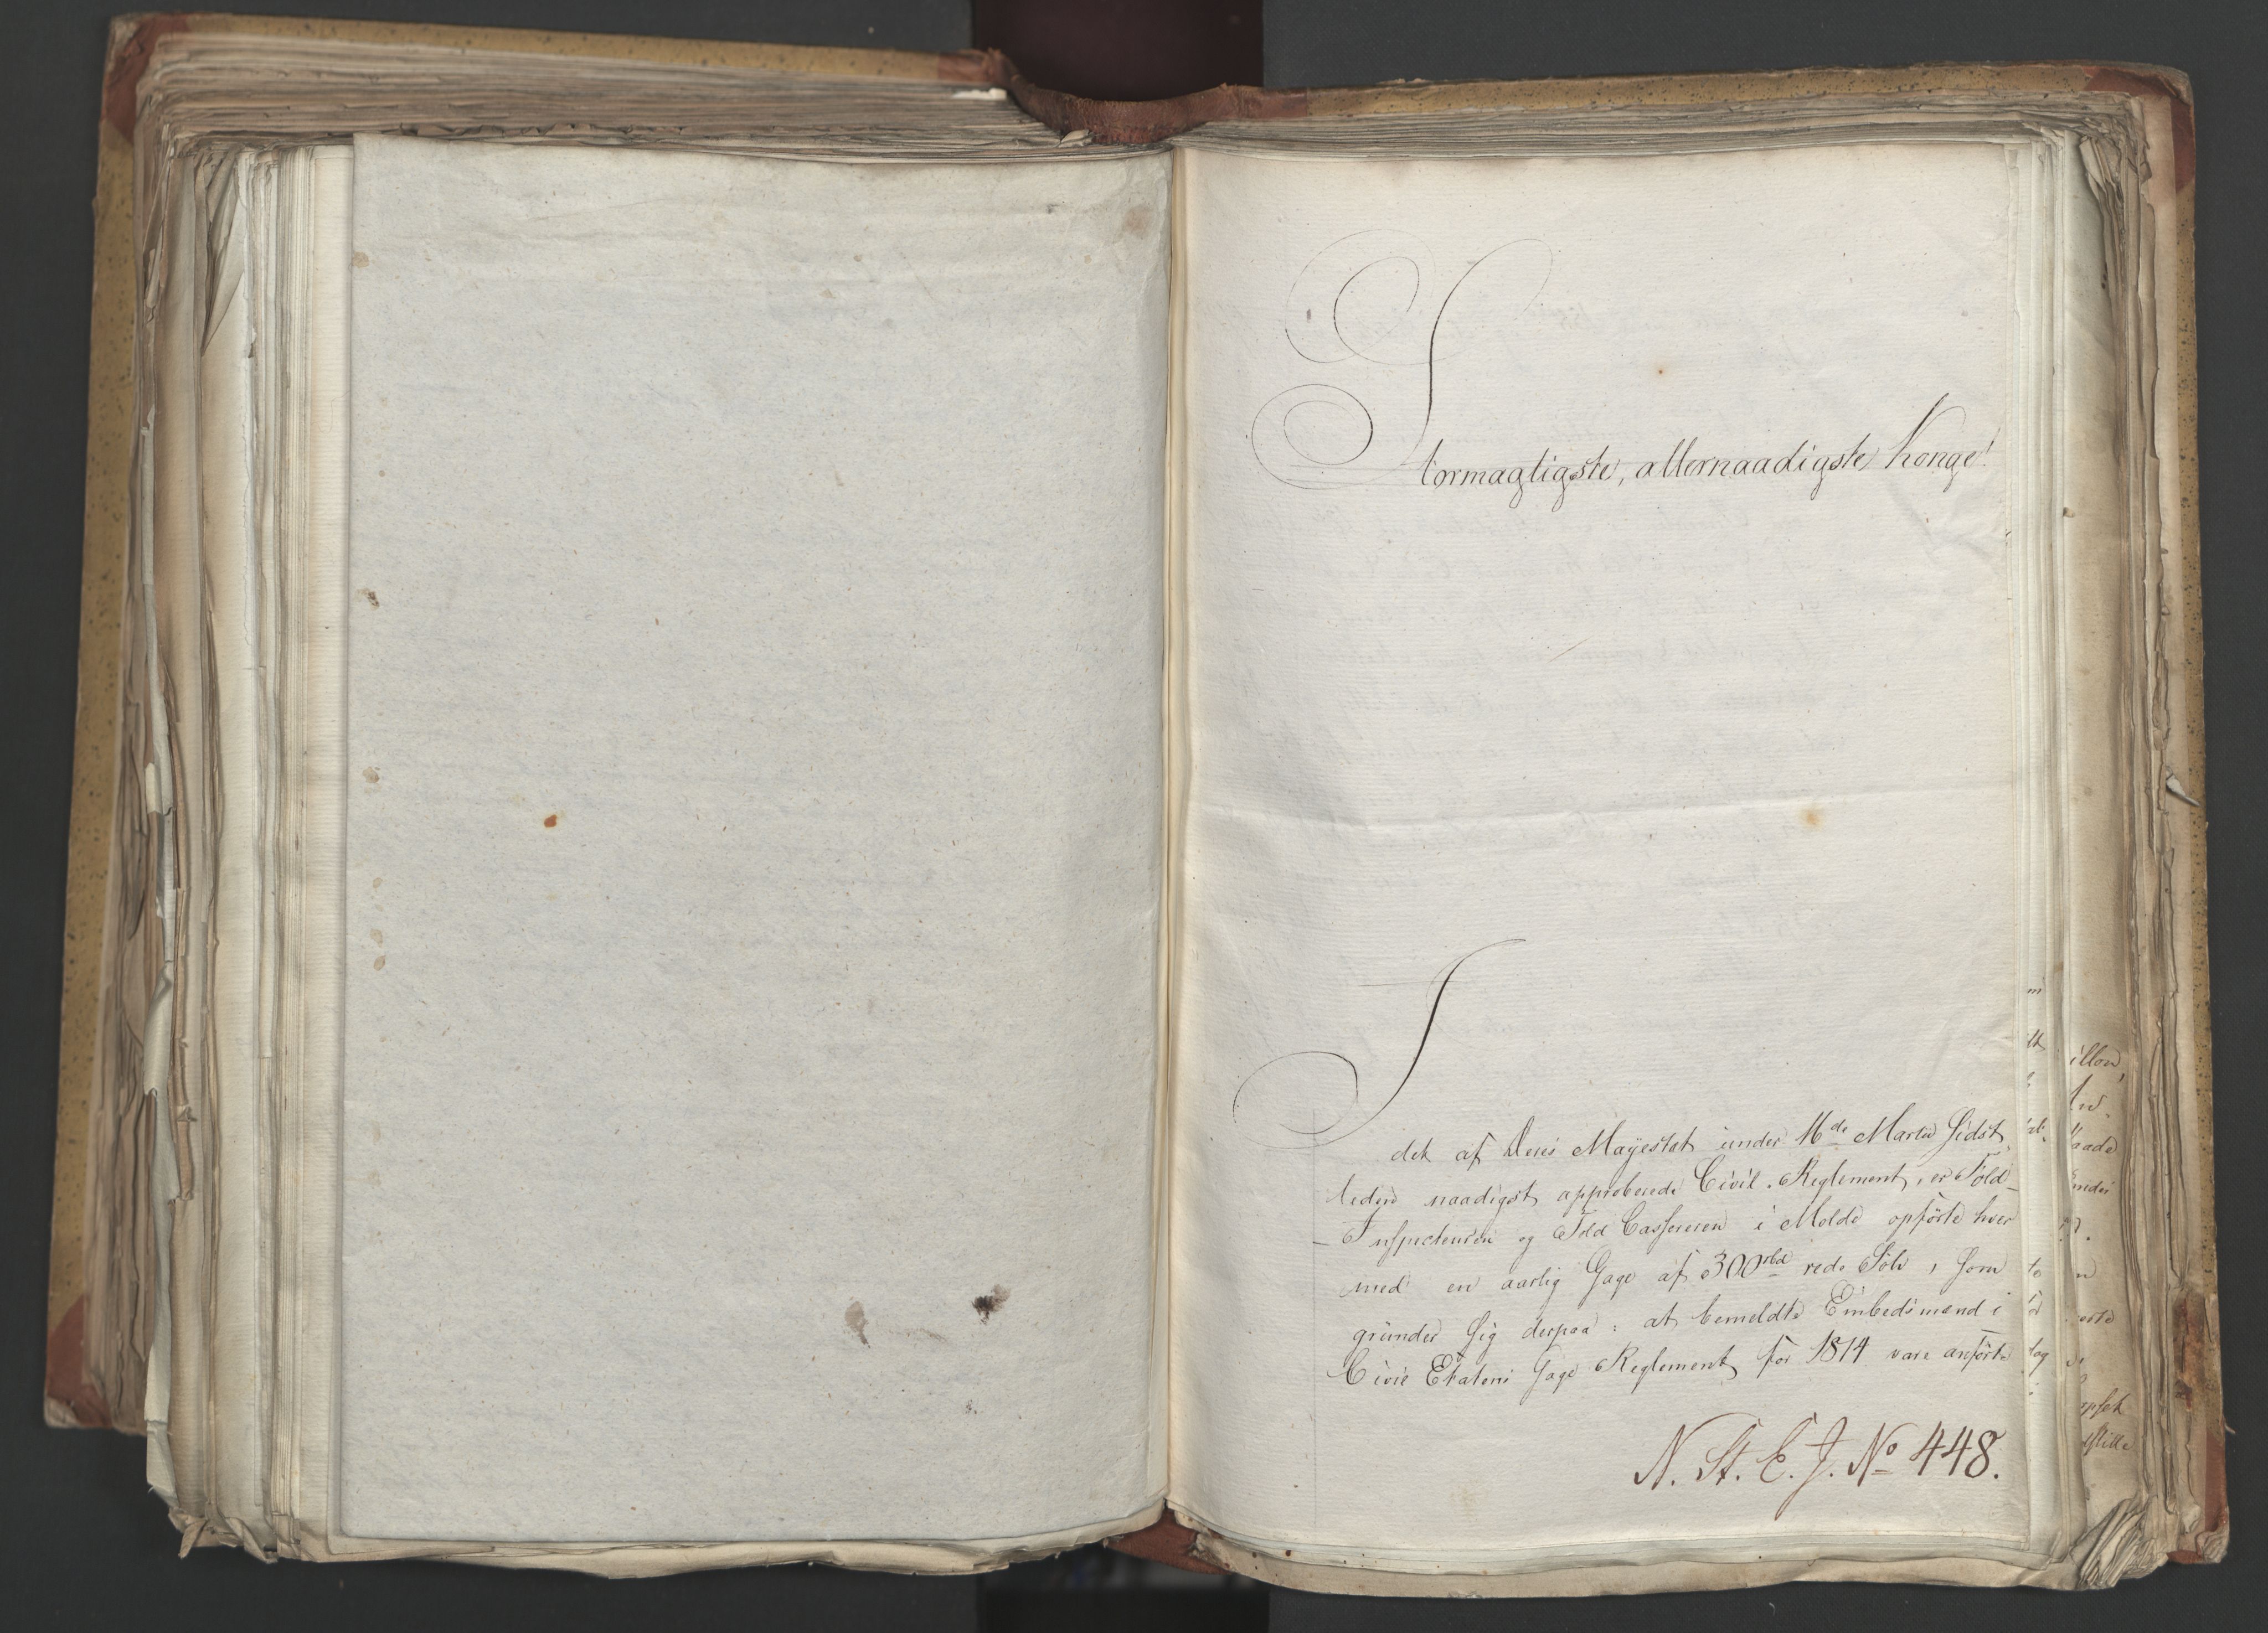 Stormagtigste, allernaadigste Konge!
I det af Deres Mayestæt under 16de Martii sidst
leden naadigst approberede Civil-Reglement, er Told-
-Inspecteuren og Told Cassereren i Molde opförte hver
med en aarlig Gage af 300 rbd rede Sölv, som
grunder sig derpaa: at bemeldte Embedsmænd i
Civil Etatens Gage Reglement for 1814 vare anförte
N. St. E. J. No 448.